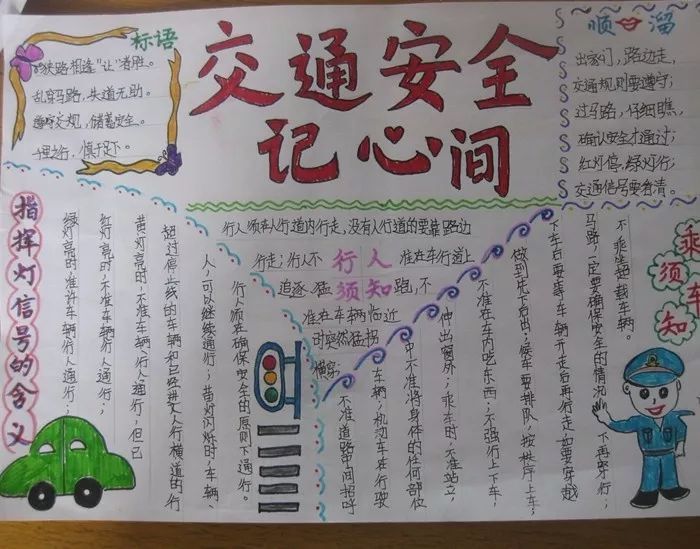 标语
狭路相逢"让"者胜。
乱穿马路，失道无助。
遵守交规，储蓄安全。
千里之行，慎于足下。
交通安全
记心间
顺溜
出家门，路边走，
交通规则要遵守；
过马路，仔细瞧，
确认安全才通过；
红灯停，绿灯行；
交通信号要看清。
指挥灯信号的含义
绿灯亮时准许车辆行人通行；
红灯亮时，不准车辆行人通行；
黄灯亮时，不准车辆、行人通行，但已
超过停止线的车辆和已经进入人行横道的行
人，可以继续通行；黄灯闪烁时，车辆、
行人须在确保安全的原则下通行。
行人须知
行人须在人行道内行走，没有人行道的要靠路边
行走；行人不准在车行道上
追逐、猛跑，不
准在车辆临近
时突然猛拐
横穿
乘车须知
不乘坐超载车辆。
马路，一定要确保安全的情况下再穿行；
下车后要等车辆开走后再行走，如要穿越
做到先下后上；候车要排队，按秩序上车；
不准在车内吃东西；不强行上下车，
伸出窗外；乘车时，不准站立，
中不准将身体的任何部位
车辆；机动车在行驶
不准道路中间招呼